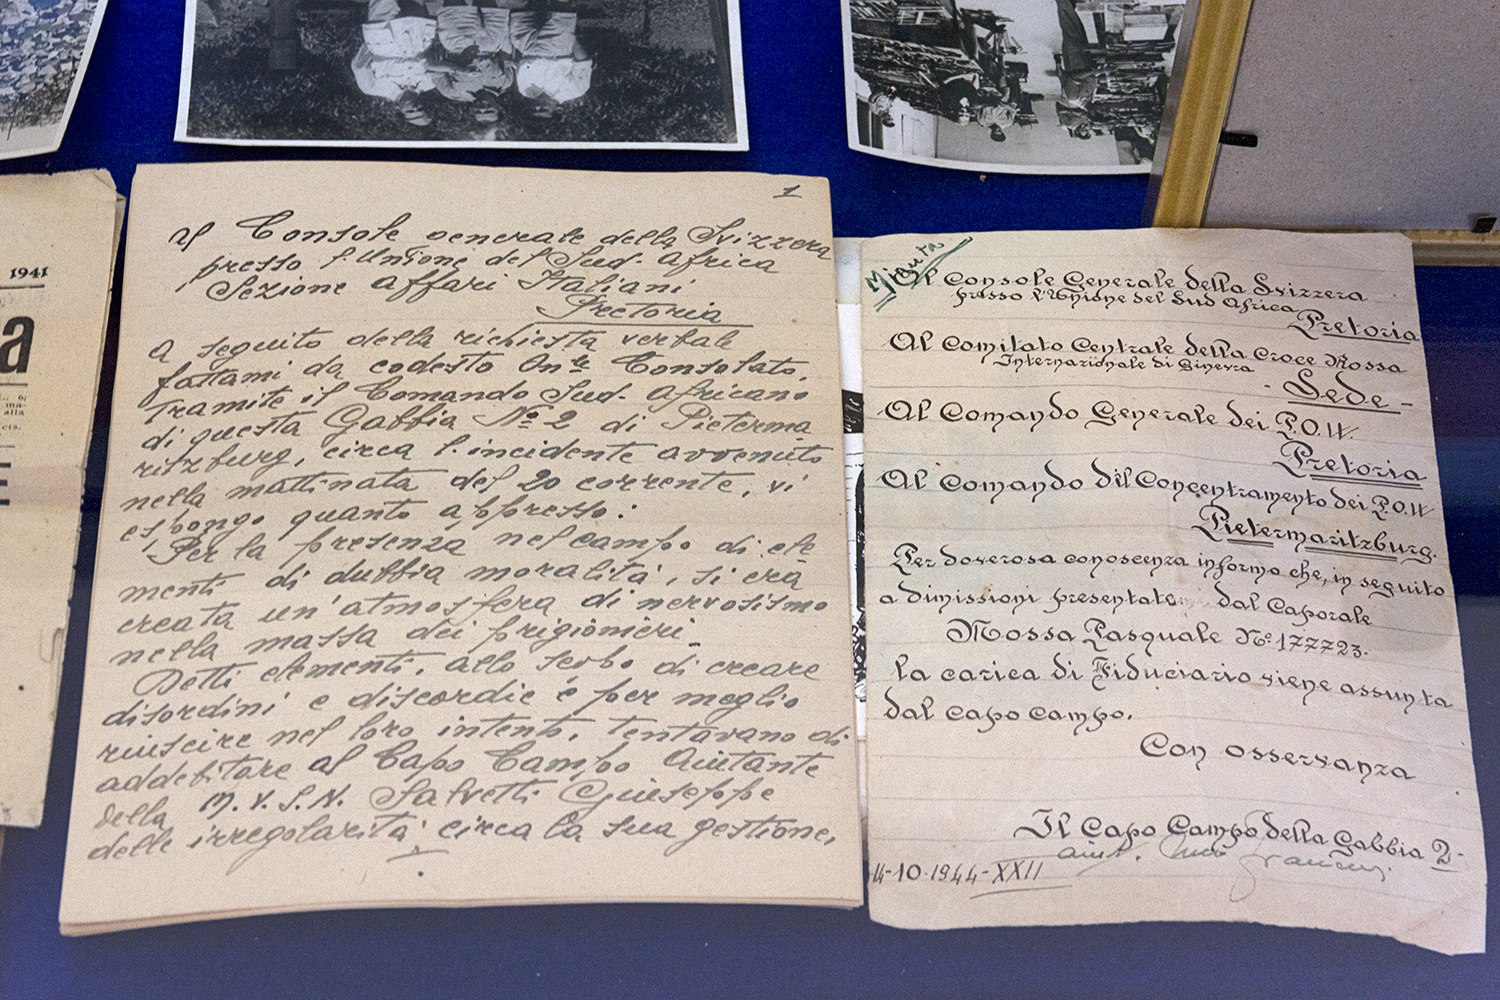 1941
a
E
1
Al Console Generale della Svizzera
presso l'Unione del Sud-Africa
Sezione Affari Italiani
Pretoria
A seguito della richiesta verbale
fattami da codesto On.le Consolato,
tramite il Comando Sud-Africano
di questa Gabbia No 2 di Pieterma
ritzburg, circa l'incidente avvenuto
nella mattinata del 20 corrente, vi
espongo quanto appresso:
Per la presenza nel campo di ele
menti di dubbia moralità, si era
creata un'atmosfera di nervosismo
nella massa dei prigionieri.
Detti elementi, allo scopo di creare
disordini e discordie e per meglio
riuscire nel loro intento, tentavano di
addebitare al Capo Campo Aiutante
della M.V.S.N. Salvetti Giuseppe
delle irregolarità circa la sua gestione,
Minuta
Al Console Generale della Svizzera
presso l'Unione del Sud Africa
Pretoria
Al Comitato Centrale della Croce Rossa
Internazionale di Ginevra
- Sede -
Al Comando Generale dei P.O.W.
Pretoria
Al Comando dil Concentramento dei P.O.W
Pietermaritzburg.
Per doverosa conoscenza informo che, in seguito
a dimissioni presentate dal Caporale
Mossa Pasquale No. 177723.
la carica di Fiduciario viene assunta
dal capo campo.
Con osservanza
Il Capo Campo della Gabbia 2-
14-10-1944-XXII